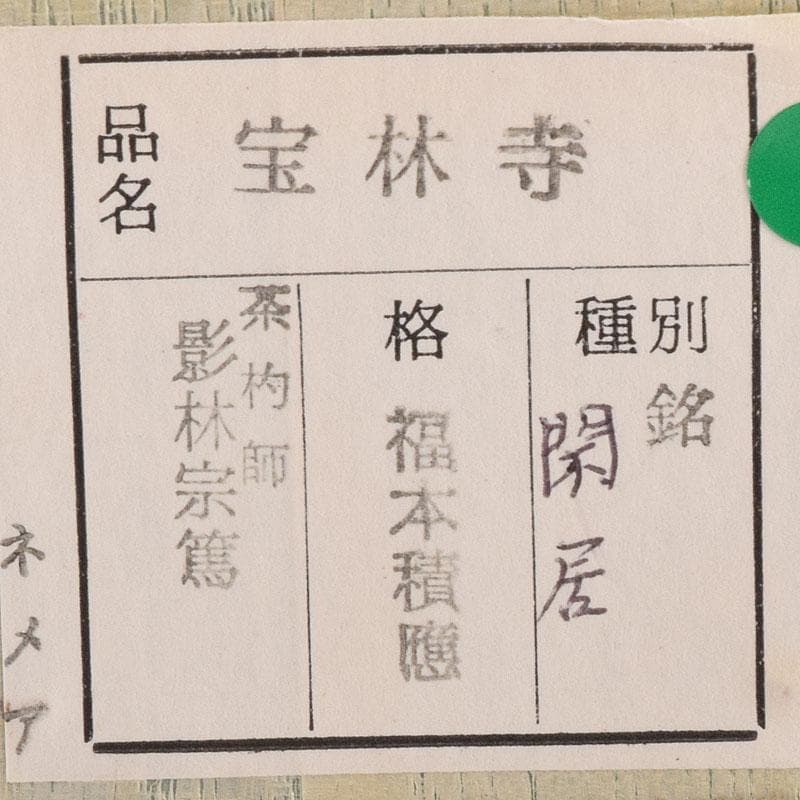 品名
宝林寺
種別
銘
閑居
格
福本積應
茶杓師
影林宗篤
ネメア